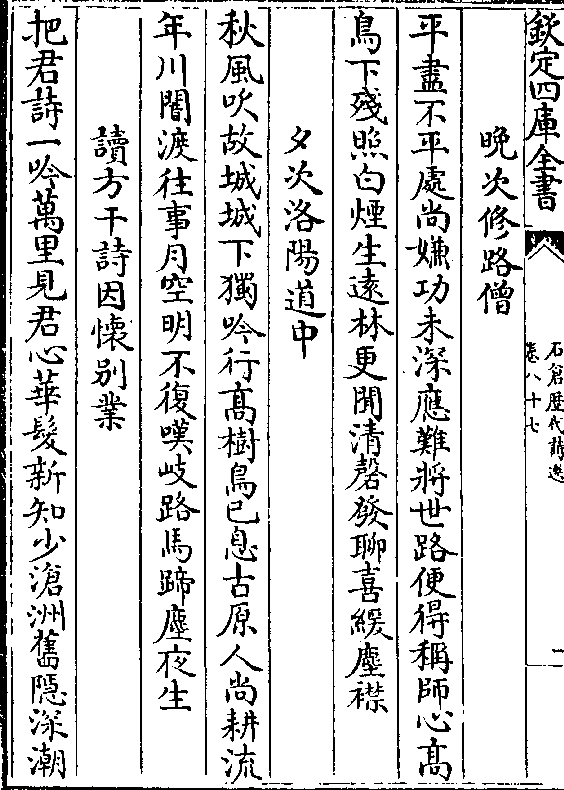 欽定四庫全書
石倉歴代詩選
卷八十七
二
晚次修路僧
平盡不平處尚嫌功未深應難將世路便得稱師心高
鳥下殘照白煙生遠林更聞清磬發聊喜緩塵襟
夕次洛陽道中
秋風吹故城城下獨吟行高樹鳥已息古原人尚耕流
年川閣淚往事月空明不復嘆岐路馬蹄塵夜生
讀方干詩因懷别業
把君詩一吟萬里見君心華髮新知少滄洲舊隱深潮